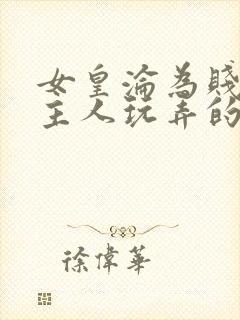 女皇淪為賤
主人玩弄的
徐偉華